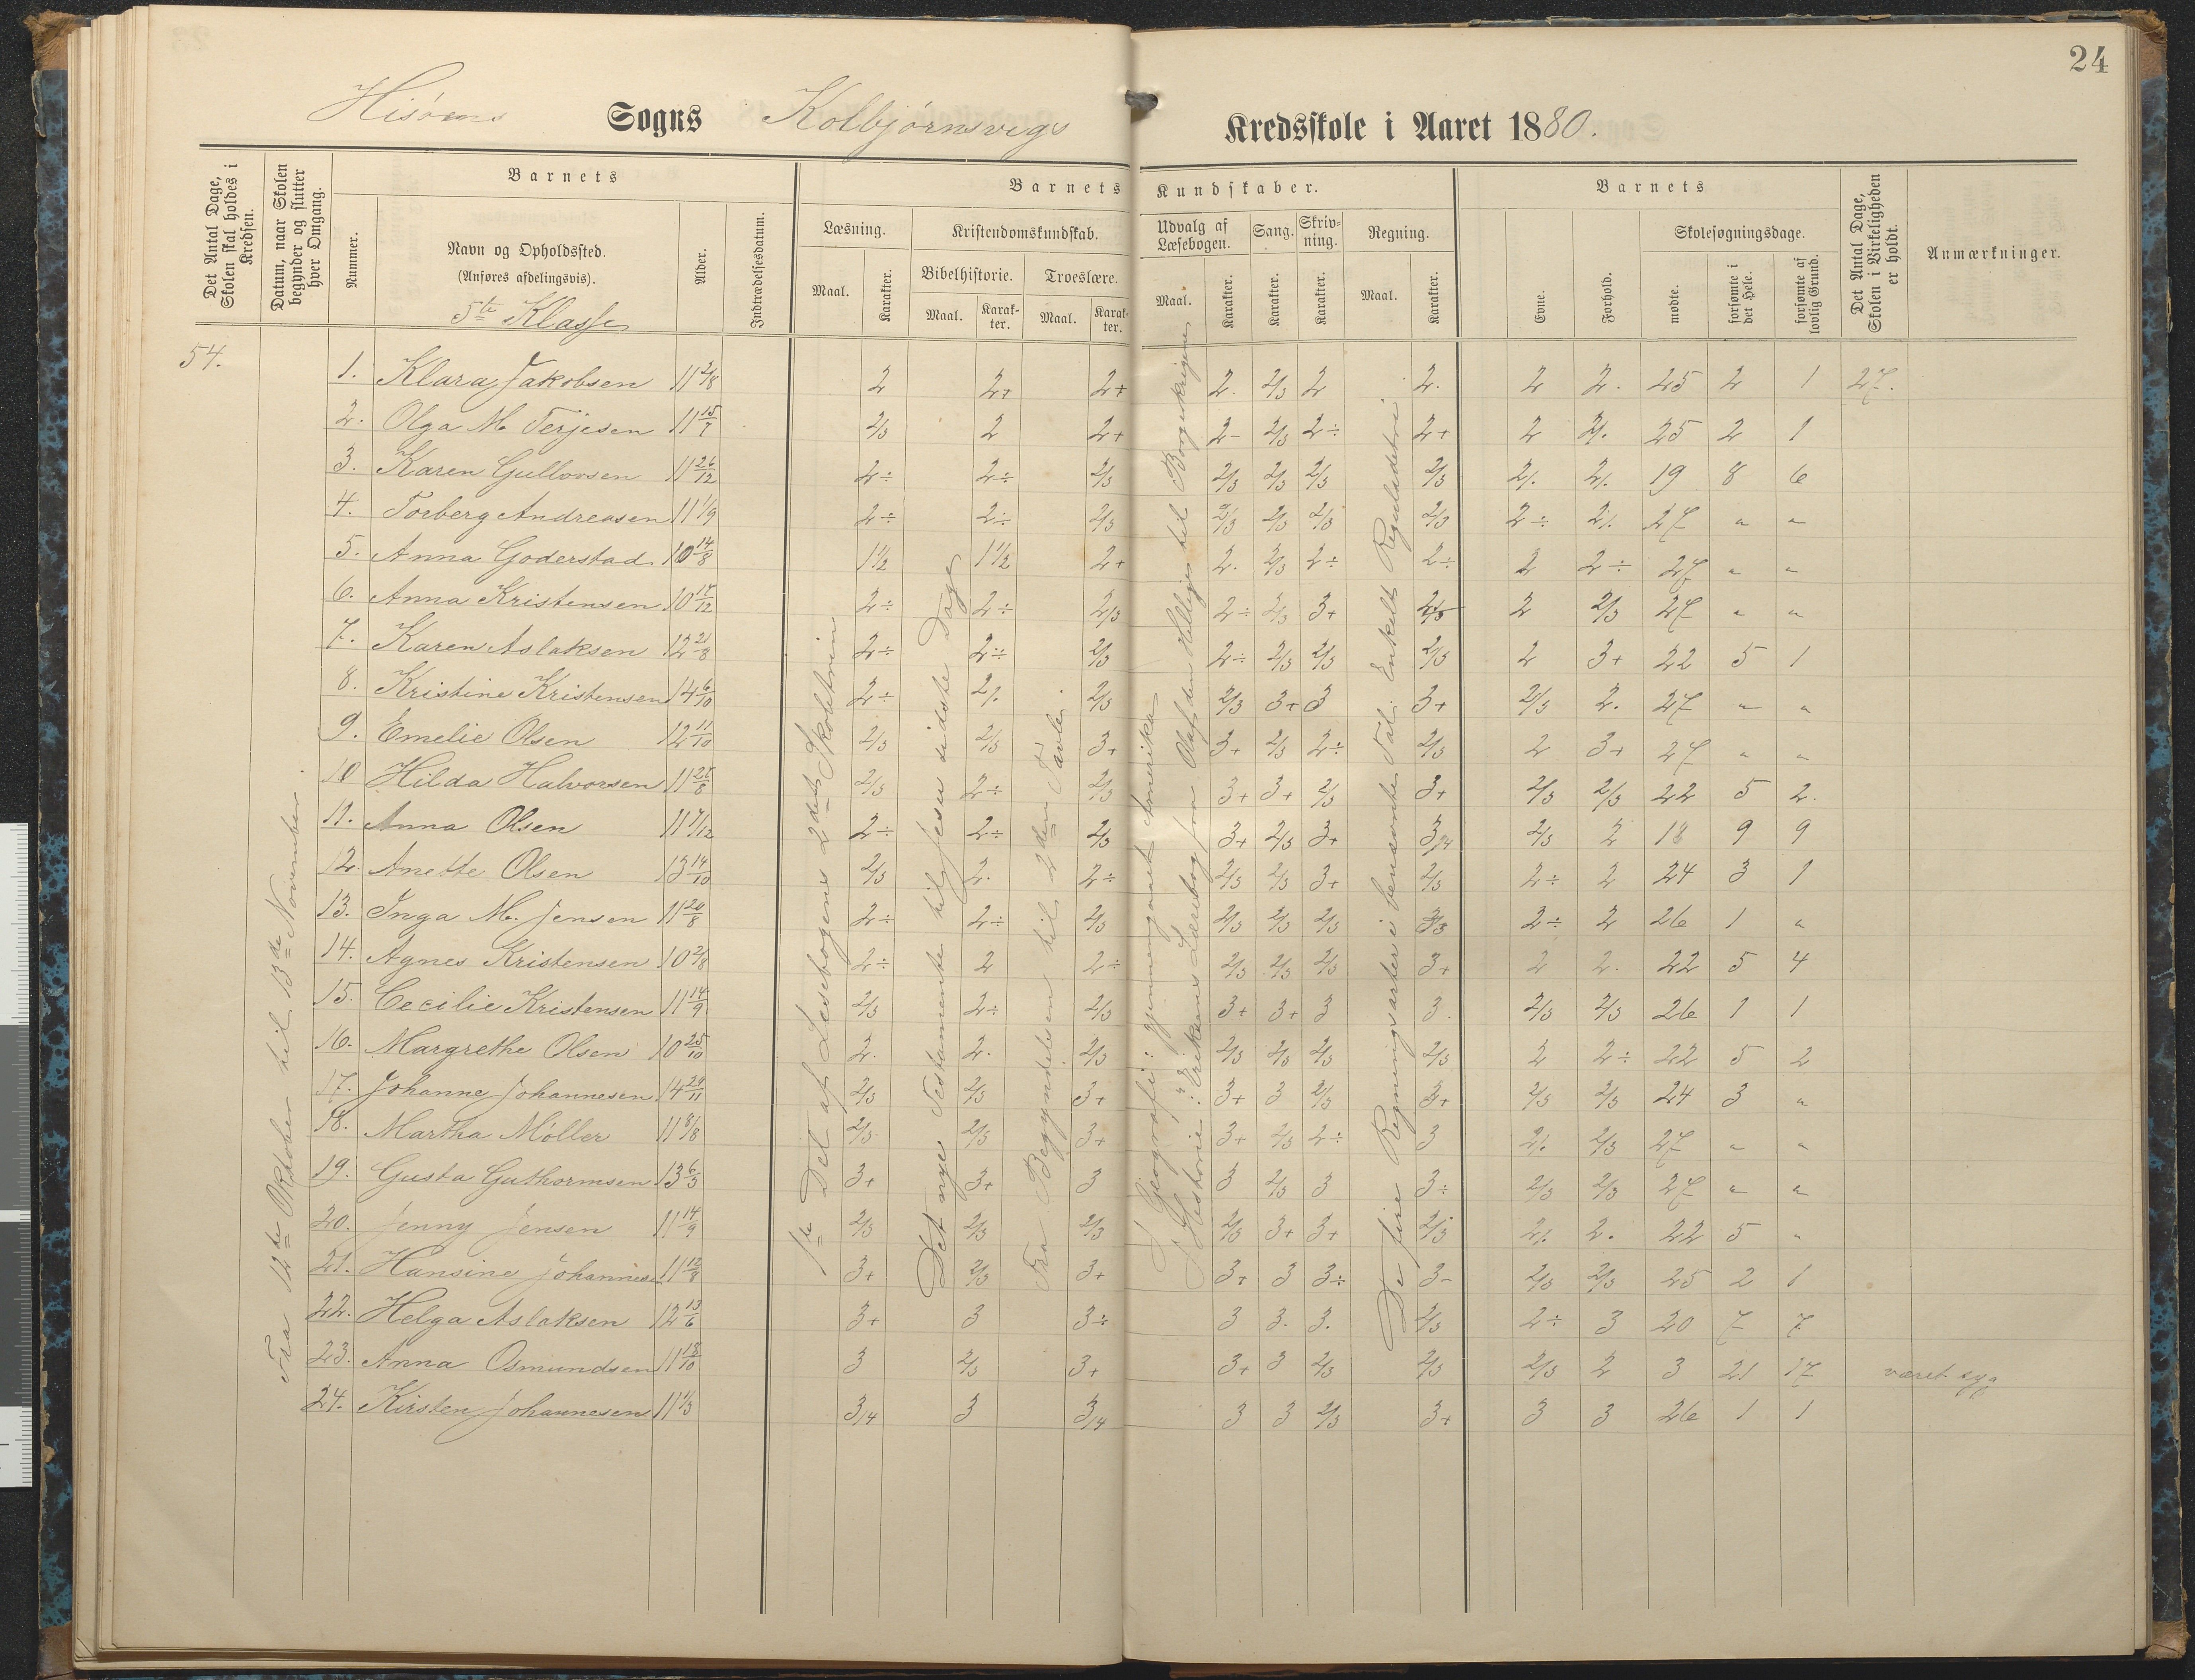 24
Hisöens Sogns Kolbjörnsvigs Kredsskole i Aaret 1880.
Det Antal Dage, Skolen skal holdes i Kredsen.
Datum, naar Skolen begynder og slutter hver Omgang.
Barnets
Nummer.
Navn og Opholdssted.
(Anføres afdelingsvis).
5te Klasse
Alder.
Indtrædelsesdatum.
Barnets Kundskaber.
Læsning.
Maal.
Karakter.
Kristendomskundskab.
Bibelhistorie.
Maal.
Karakter.
Troeslære.
Maal.
Karakter.
Udvalg af Læsebogen.
Maal.
Karakter.
Sang.
Karakter.
Skrivning.
Karakter.
Regning.
Maal.
Karakter.
Barnets
Evne.
Forhold.
Skolesøgningsdage.
mødte.
forsømte i det Hele.
forsømte af lovlig Grund.
Det Antal Dage, Skolen i Virkeligheden er holdt.
Anmærkninger.
54.
Fra 12te Oktober til 13de November.
1ste Del af Læsebogens 2det Skoletrin
Det nye Testamente til Jesu sidste Dage
Fra Begyndelsen til 2den Tavle.
Geografi: gjennemgaaet Amerika
Historie: Eriksens Lærebog fra Olaf den Hellige til Borgerkrigene
De fire Regningsarter i benævnte Tal. Enkelt Reguladetri
1. Klara Jakobsen 11 2/8 2 2+ 2+ 2. 2/3 2 2. 2 2. 25 2 1 27.
2. Olga M. Terjesen 11 15/7 2/3 2 2+ 2- 2/3 2÷ 2+ 2 2/. 25 2 1
3. Karen Gullovsen 11 26/12 2÷ 2÷ 2/3 2/3 2/3 2/3 2/3 2/. 2/. 19 8 6
4. Torberg Andreasen 11 1/9 2÷ 2÷ 2/3 2/3 2/3 2/3 2/3 2÷ 2/. 27 " "
5. Anna Goderstad 10 14/8 1½ 1½ 2+ 2. 2/3 2÷ 2÷ 2 2÷ 27 " "
6. Anna Kristensen 10 17/12 2÷ 2÷ 2/3 2÷ 2/3 3+ 2/3 2 2/3 27 " "
7. Karen Aslaksen 12 21/8 2÷ 2÷ 2/3 2÷ 2/3 2/3 2/3 2 3+ 22 5 1
8. Kristine Kristensen 14 6/10 2÷ 2/. 2/3 2/3 3+ 3 3+ 2/3 2. 27 " "
9. Emelie Olsen 12 11/10 2/3 2/3 3+ 3+ 2/3 2÷ 2/3 2 3+ 27 " "
10 Hilda Halvorsen 11 25/8 2/3 2÷ 2/3 3+ 3+ 2/3 3+ 2/3 2/3 22 5 2.
11. Anna Olsen 11 7/12 2÷ 2÷ 2/3 3+ 2/3 3+ 3/4 2/3 2 18 9 9
12. Anette Olsen 13 14/10 2/3 2. 2÷ 2/3 2/3 3+ 2/3 2÷ 2 24 3 1
13. Inga M. Jensen 11 20/8 2÷ 2÷ 2/3 2/3 2/3 2/3 2/3 2÷ 2 26 1 "
14. Agnes Kristensen 10 2/8 2÷ 2 2÷ 2/3 2/3 2/3 3+ 2 2. 22 5 4
15. Cecilie Kristensen 11 14/9 2/3 2÷ 2/3 3+ 3+ 3 3. 2/3 2/3 26 1 1
16. Margrethe Olsen 10 25/10 2. 2. 2/3 2/3 2/3 2/3 2/3 2 2÷ 22 5 2
17. Johanne Johannesen 14 28/11 2/3 2/3 3+ 3+ 3 2/3 3+ 2/3 2/3 24 3 "
18. Martha Möller 11 8/8 2/3 2/3 3+ 3+ 2/3 2÷ 3 2/. 2/3 27 " "
19. Gusta Guthormsen 13 6/3 3+ 3+ 3 3 2/3 3 3÷ 2/3 2/3 27 " "
20. Jenny Jensen 11 14/9 2/3 2/3 2/3 2/3 3+ 3+ 2/3 2/. 2. 22 5 "
21. Hansine Johannesen 11 12/8 3+ 2/3 3+ 3+ 3 3÷ 3- 2/3 2/3 25 2 1
22. Helga Aslaksen 12 13/6 3+ 3 3÷ 3 3. 3. 2/3 2÷ 3 20 7 7
23. Anna Osmundsen 11 18/10 3 2/3 3+ 3+ 3 2/3 2/3 2/3 2 3 21 17 været syg
24. Kirsten Johannesens 11 1/3 3/4 3 3/4 3 3 2/3 3+ 3 3 26 1 1